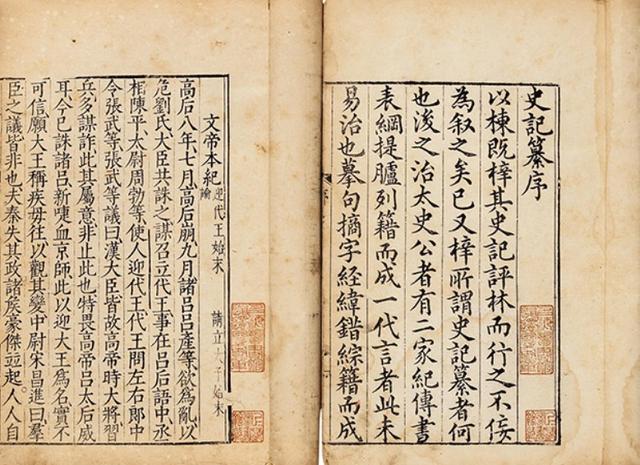 史記纂序
以棟既梓其史記評林而行之不佞
為叙之矣已又梓所謂史記纂者何
也後之治太史公者有二家紀傳書
表綱提臚列籍而成一代言者此未
易治也摹句摘字経緯錯綜籍而成
文帝本紀 諭 迎代王始末 請立太子始末
高后八年七月高后崩九月諸呂呂產等欲爲亂以
危劉氏大臣共誅之謀召立代王事在呂后語中丞
相陳平太尉周勃等使人迎代王代王問左右郎中
令張武等張武等議曰漢大臣皆故高帝時大將習
兵多謀詐此其屬意非止此也特畏高帝呂太后威
耳今已誅諸呂新啑血京師此以迎大王爲名實不
可信願大王稱疾毋往以觀其變中尉宋昌進曰羣
臣之議皆非也夫秦失其政諸侯豪傑並起人人自